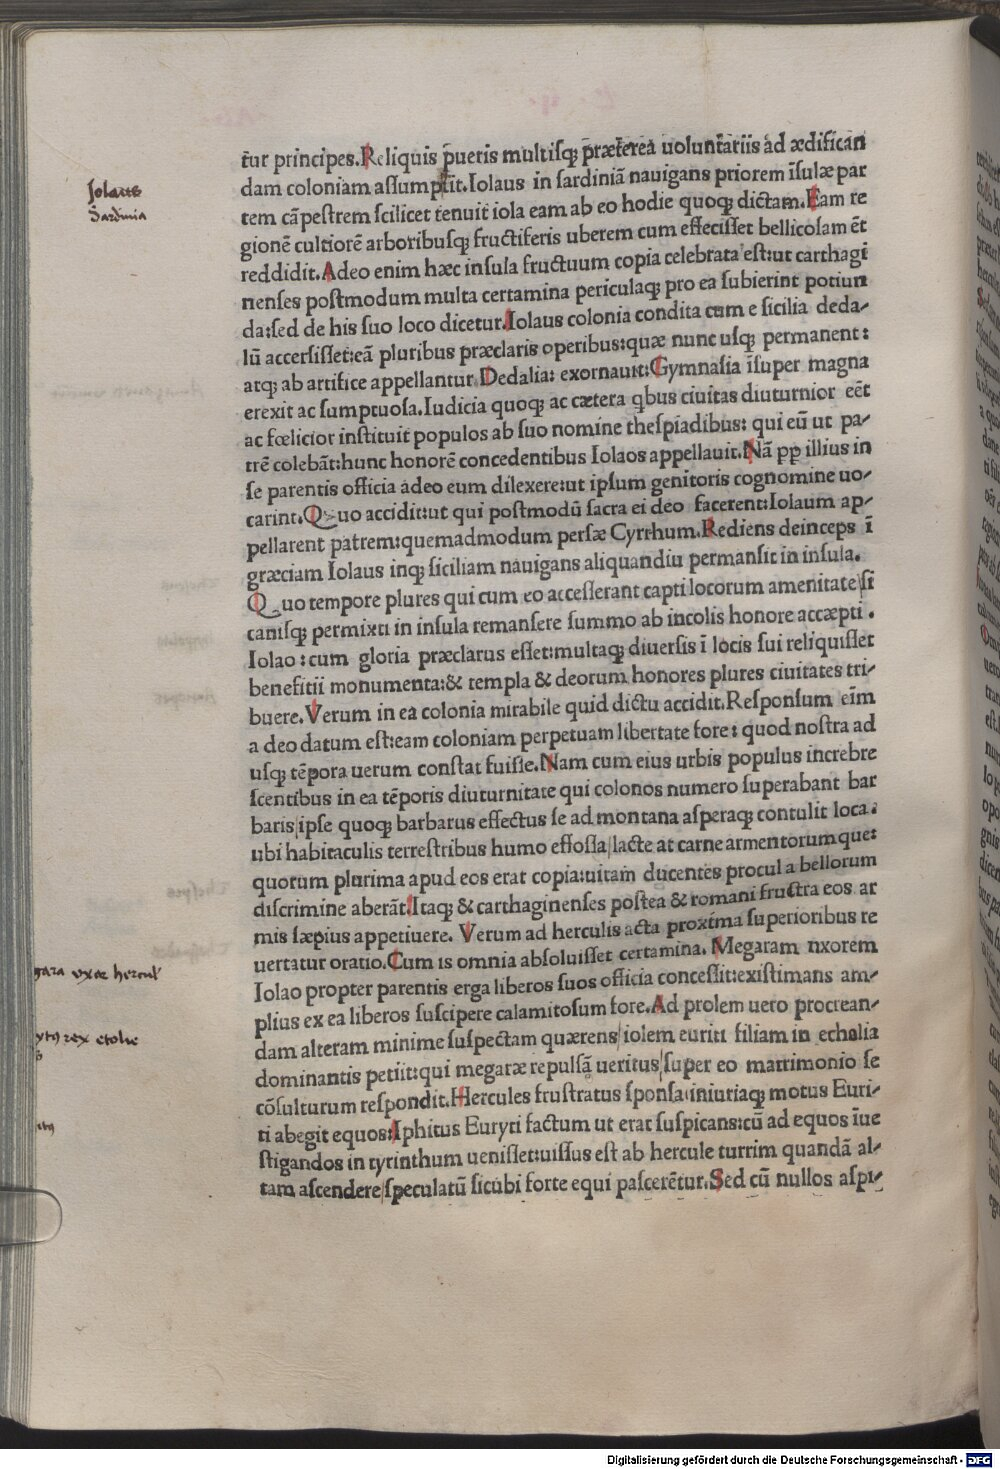 Jolaus
Sardinia
t̄ur principes.Reliquis p̄ueris multiſq; præterea uoluntariis ad ædifican
dam coloniam aſſumptit.Iolaus in ſardiniā nauigans priorem īſulæ par
tem cāpeſtrem ſcilicet tenuit iola eam ab eo hodie quoq; dictam.Eam re
gionē cultiorē arboribuſq; fructiferis uberem cum effeciſſet bellicoſam ēt
reddidit.Adeo enim hæc inſula fructuum copia celebrata eſt:ut carthagi
nenſes poſtmodum multa certamina periculaq; pro ea ſubierint potiun
da:ſed de his ſuo loco dicetur.Iolaus colonia condita cum e ſicilia deda-
lū accerſiſſet:eā pluribus præclaris operibus:quæ nunc uſq; permanent:
atq; ab artifice appellantur Dedalia: exornauit:Gymnaſia īſuper magna
erexit ac ſumptuoſa.Iudicia quoq; ac cætera qbus ciuitas diuturnior eēt
ac fœlicior inſtituit populos ab ſuo nomine theſpiadibus: qui eū ut pa-
trē colebāt:hunc honorē concedentibus Iolaos appellauit.Nā pp illius in
ſe parentis officia adeo eum dilexere:ut ipſum genitoris cognomine uo-
carint.Quo accidit:ut qui poſtmodū ſacra ei deo facerent:Iolaum ap-
pellarent patrem:quemadmodum perſæ Cyrrhum.Rediens deinceps ī
græciam Iolaus inq; ſiciliam nauigans aliquandiu permanſit in inſula.
Quo tempore plures qui cum eo acceſſerant capti locorum amenitate ſi
caniſq; permixti in inſula remanſere ſummo ab incolis honore accæpti.
Iolao:cum gloria præclarus eſſet:multaq; diuerſis ī locis ſui reliquiſſet
benefitii monumenta:& templa & deorum honores plures ciuitates tri-
buere.Verum in ea colonia mirabile quid dictu accidit.Reſponſum eim̄
a deo datum eſt:eam coloniam perpetuam libertate fore: quod noſtra ad
uſq; tēpora uerum conſtat fuiſſe.Nam cum eius urbis populus increbre
ſcentibus in ea tēporis diuturnitate qui colonos numero ſuperabant bar
baris|ipſe quoq; barbarus effectus ſe ad montana aſperaq; contulit loca:
ubi habitaculis terreſtribus humo effoſſa|lacte at carne armentorum que:
quorum plurima apud eos erat copia:uitam ducentes procul a bellorum
diſcrimine aberāt.Itaq; & carthaginenſes poſtea & romani fruſtra eos ar
mis ſæpius appetiuere. Verum ad herculis acta proxima ſuperioribus re
uertatur oratio.Cum is omnia abſoluiſſet certamina. Megaram nxorem
Iolao propter parentis erga liberos ſuos officia conceſſit:exiſtimans am-
plius ex ea liberos ſuſcipere calamitoſum fore.Ad prolem uero procrean-
dam alteram minime ſuſpectam quærens|iolem euriti filiam in echalia
dominantis petiit:qui megaræ repulſā ueritus|ſuper eo matrimonio ſe
cōſulturum reſpondit.Hercules fruſtratus ſponſa iniuriaq; motus Euri-
ti abegit equos:Iphitus Euryti factum ut erat ſuſpicans:cū ad equos īue
ſtigandos in tyrinthum ueniſſet:uiſſus eſt ab hercule turrim quandā al-
tam aſcendere|ſpeculatū ſicubi forte equi paſcerētur.Sed cū nullos aſpi-
gara vxor hercul'
rex etolie
Digitalisierung gefördert durch die Deutsche Forschungsgemeinschaft - DFG